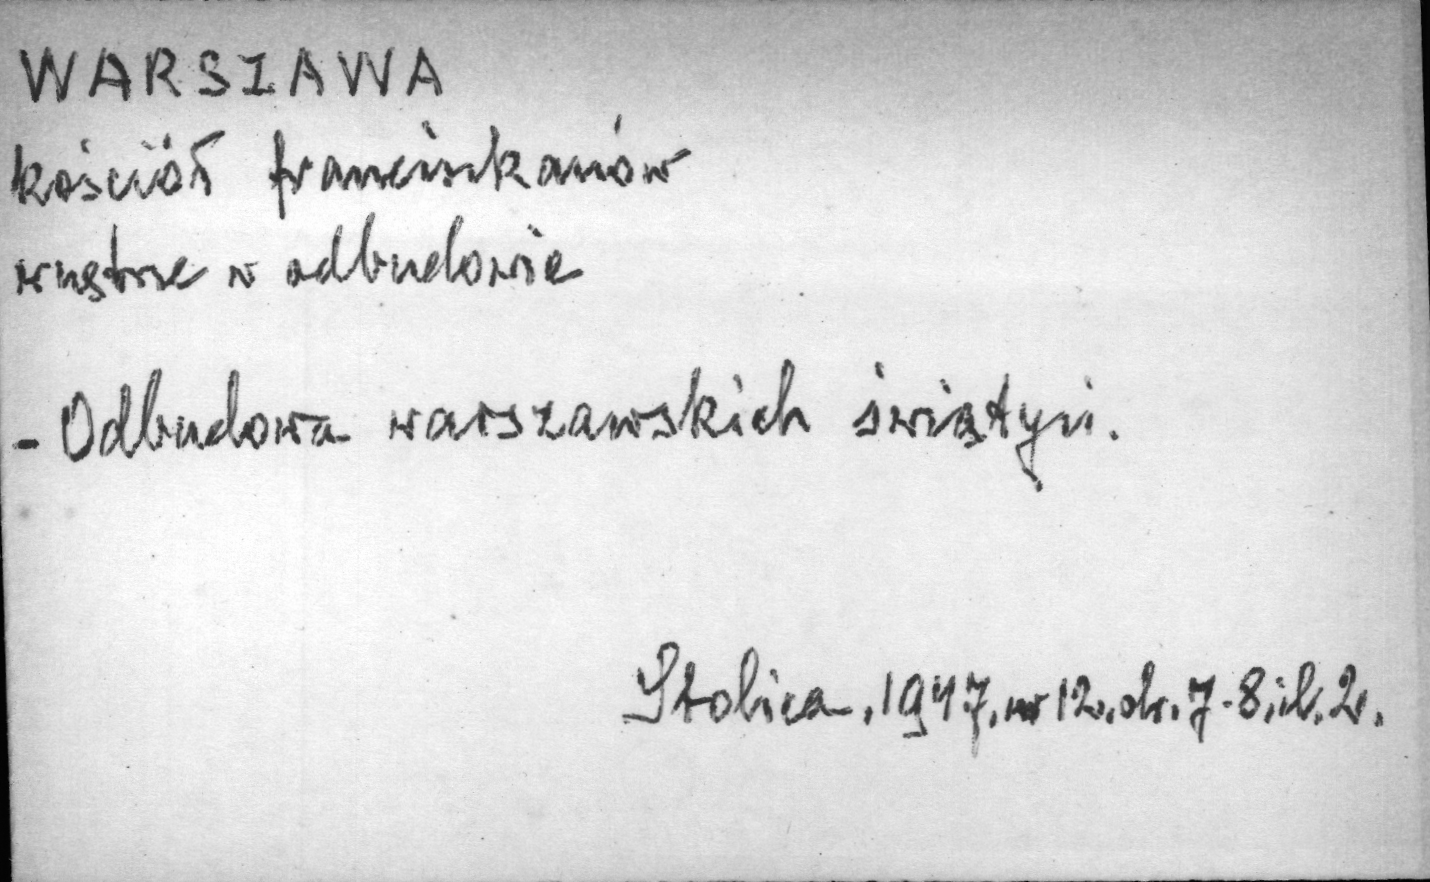 WARSZAWA
kościół franciszkanów
wnętrze w odbudowie
- Odbudowa warszawskich świątyń.
Stolica, 1947, nr 12, str. 7-8, il. 2.